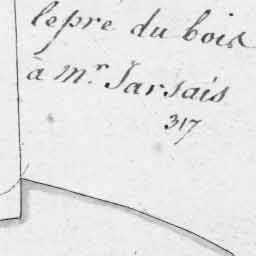 le pre du bois
à Mr. Jarsais
317